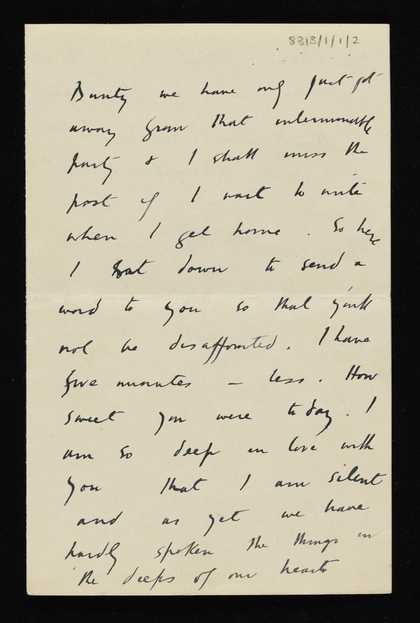 8313/1/1/2
Bunty we have only just got
away from that interminable
party & I shall miss the
post if I wait to write
when I get home. So here
I sat down to send a
word to you so that you'll
not be disappointed. I have
five minutes – less. How
sweet you were today. I
am so deep in love with
you that I am silent
and as yet we have
hardly spoken the things in
the deeps of our hearts